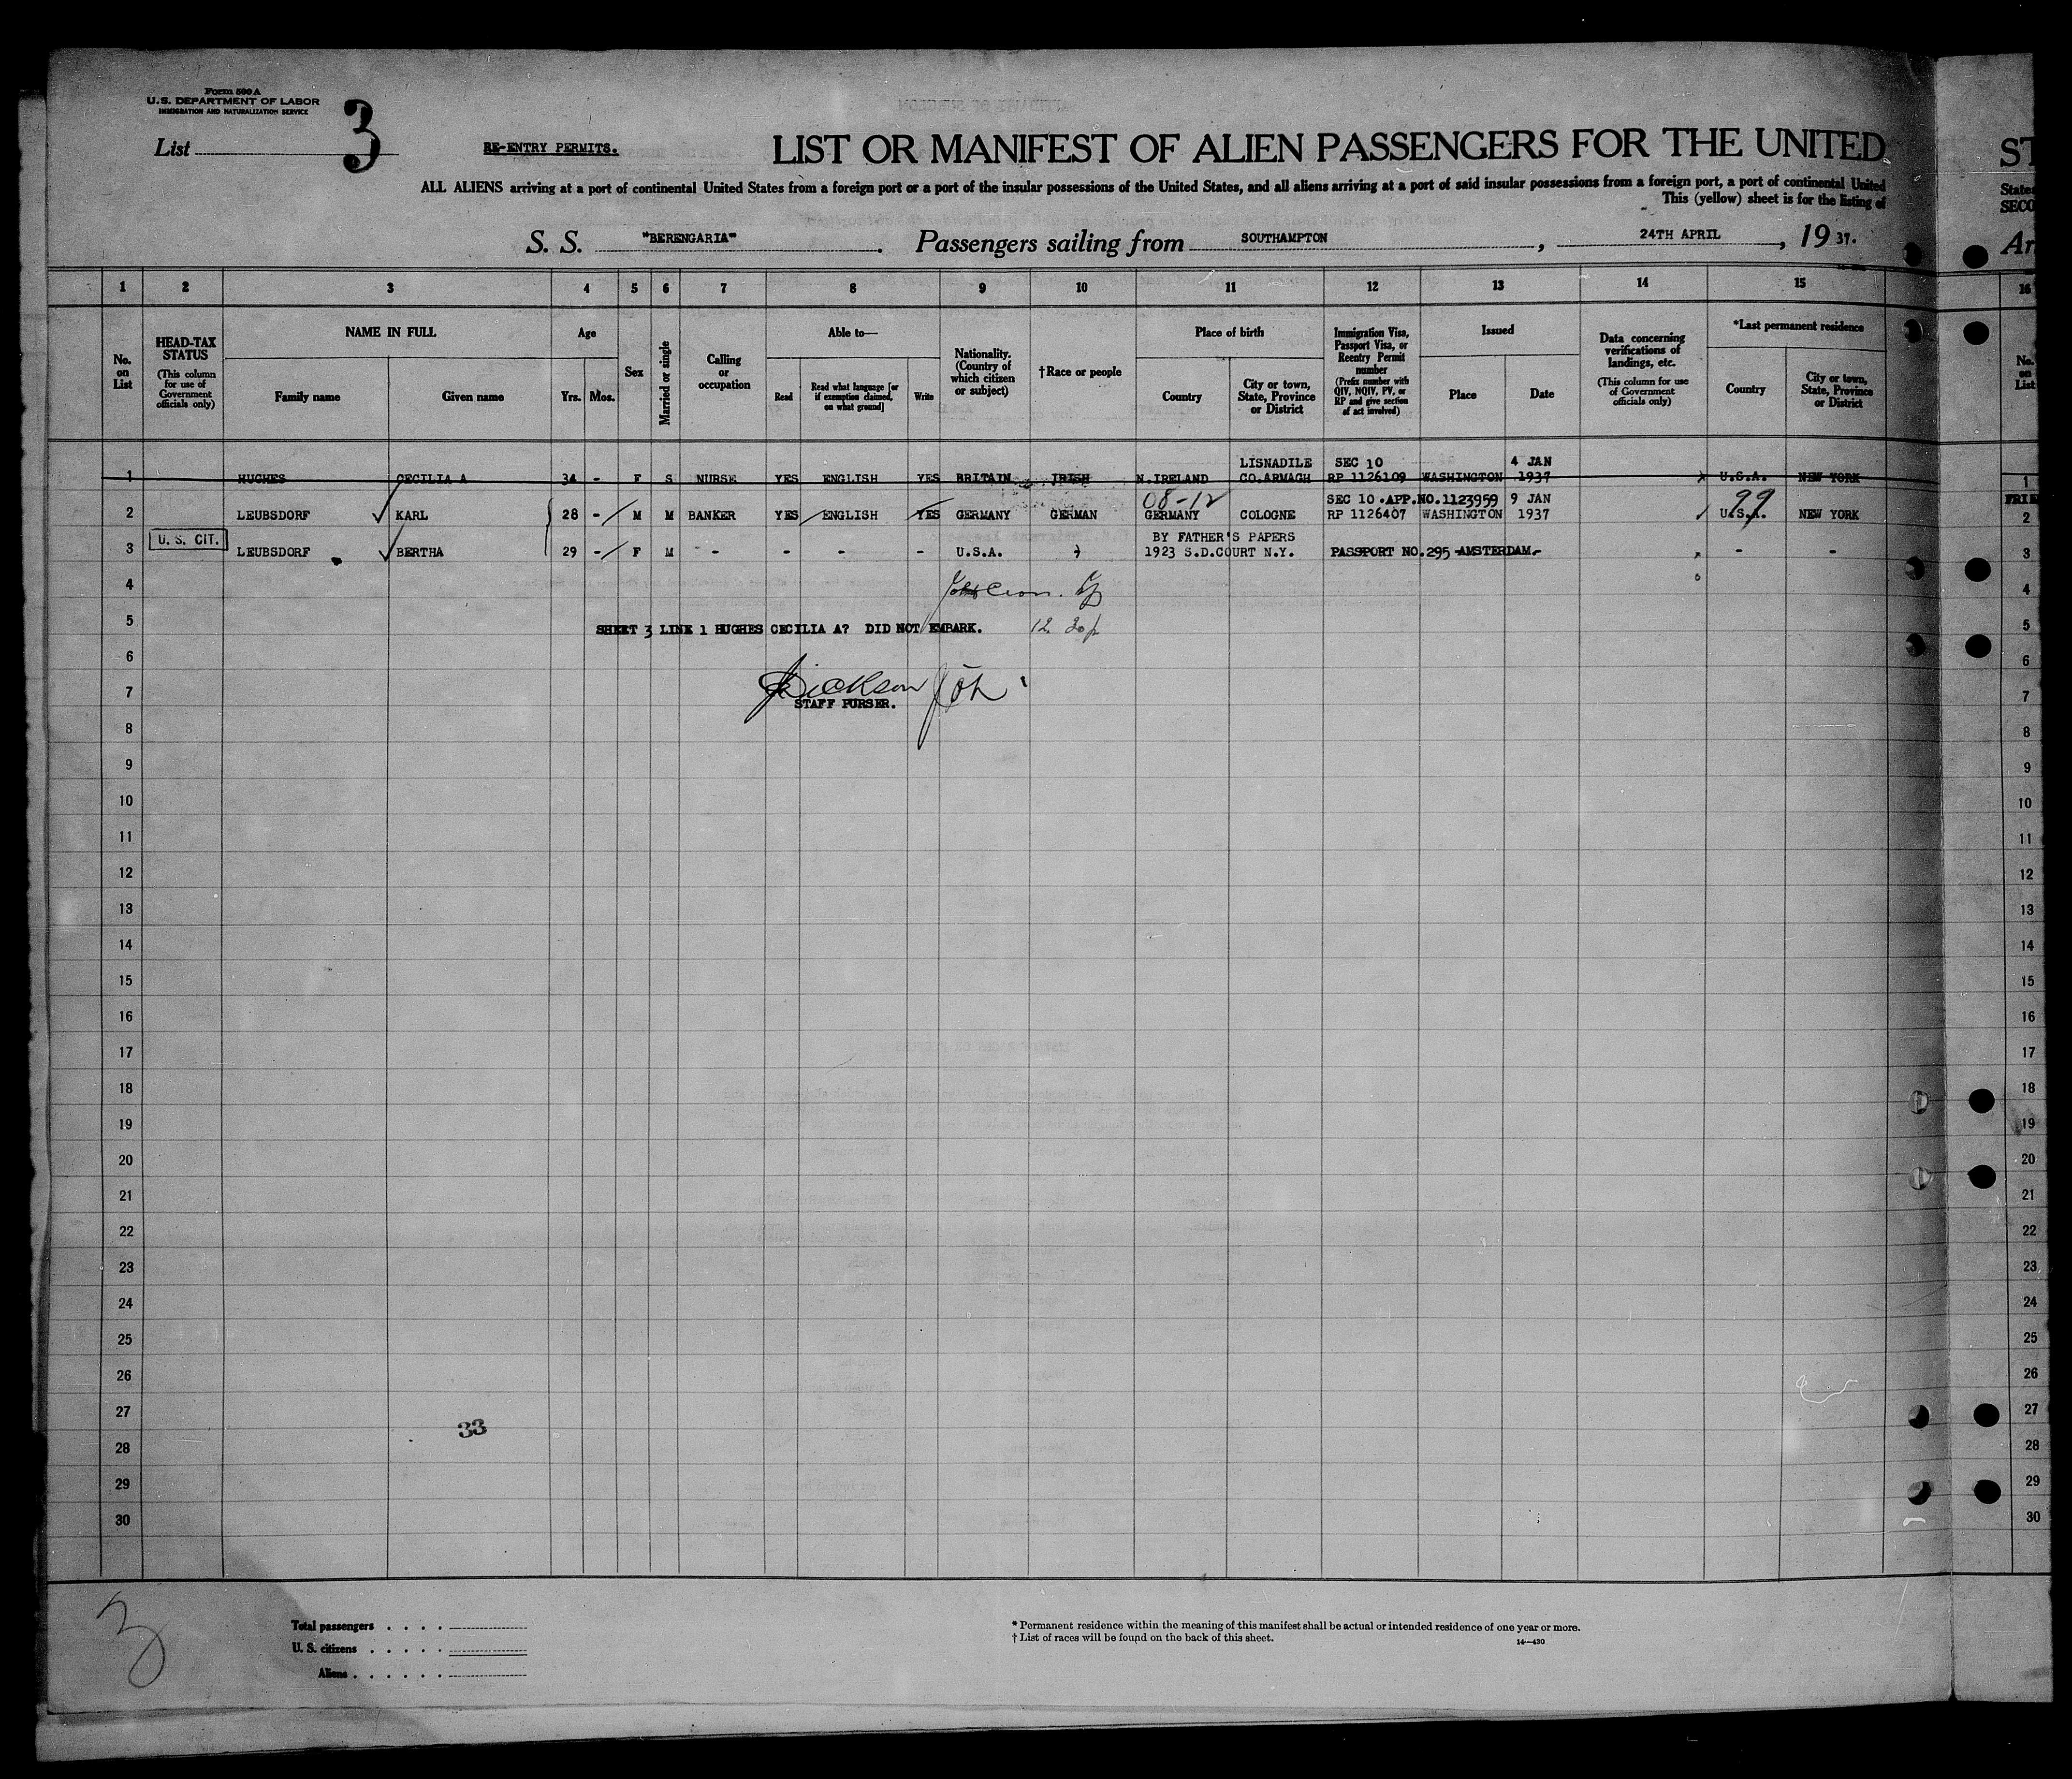 Form 500 A
U.S. DEPARTMENT OF LABOR
IMMIGRATION AND NATURALIZATION SERVICE
List 3
RE-ENTRY PERMITS.
LIST OR MANIFEST OF ALIEN PASSENGERS FOR THE UNITED
ST
ALL ALIENS arriving at a port of continental United States from a foreign port or a port of the insular possessions of the United States, and all aliens arriving at a port of said insular possessions from a foreign port, a port of continental United
States
This (yellow) sheet is for the listing of
SECO
S. S. "BERENGARIA". Passengers sailing from SOUTHAMPTON, 24TH APRIL, 19 37.
Ar
1 2 3 4 5 6 7 8 9 10 11 12 13 14 15 16
No. on List
HEAD-TAX STATUS (This column for use of Government officials only)
NAME IN FULL
Family name
Given name
Age
Yrs.
Mos.
Sex
Married or single
Calling or occupation
Able to—
Read
Read what language [or if exemption claimed, on what ground]
Write
Nationality. (Country of which citizen or subject)
†Race or people
Place of birth
Country
City or town, State, Province or District
Immigration Visa, Passport Visa, or Reentry Permit number (Prefix number with QIV, NQIV, PV, or RP and give section of act involved)
Issued
Place
Date
Data concerning verifications of landings, etc. (This column for use of Government officials only)
*Last permanent residence
Country
City or town, State, Province or District
No. on List
LISNADILE SEC 10 4 JAN
1 HUGHES CECILIA A 34 - F S NURSE YES ENGLISH YES BRITAIN IRISH N.IRELAND CO.ARMAGH RP 1126109 WASHINGTON 1937 U.S.A. NEW YORK 1
08-12 SEC 10 . APP.NO.1123959 9 JAN 99
2 LEUBSDORF KARL 28 - M M BANKER YES ENGLISH YES GERMANY GERMAN GERMANY COLOGNE RP 1126407 WASHINGTON 1937 U.S.A. NEW YORK 2
U. S. CIT. BY FATHER'S PAPERS
3 LEUBSDORF BERTHA 29 - F M - - - - U.S.A. 1923 S.D.COURT N.Y. PASSPORT NO.295 AMSTERDAM.- - - 3
4 4
5 SHEET 3 LINE 1 HUGHES CECILIA A? DID NOT EMBARK. 5
6 6
7 Dickson 7
STAFF PURSER.
8 8
9 9
10 10
11 11
12 12
13 13
14 14
15 15
16 16
17 17
18 18
19 19
20 20
21 21
22 22
23 23
24 24
25 25
26 26
27 27
33
28 28
29 29
30 30
3
Total passengers . . . .
U. S. citizens . . . . .
Aliens . . . . . .
* Permanent residence within the meaning of this manifest shall be actual or intended residence of one year or more.
† List of races will be found on the back of this sheet.
14—430